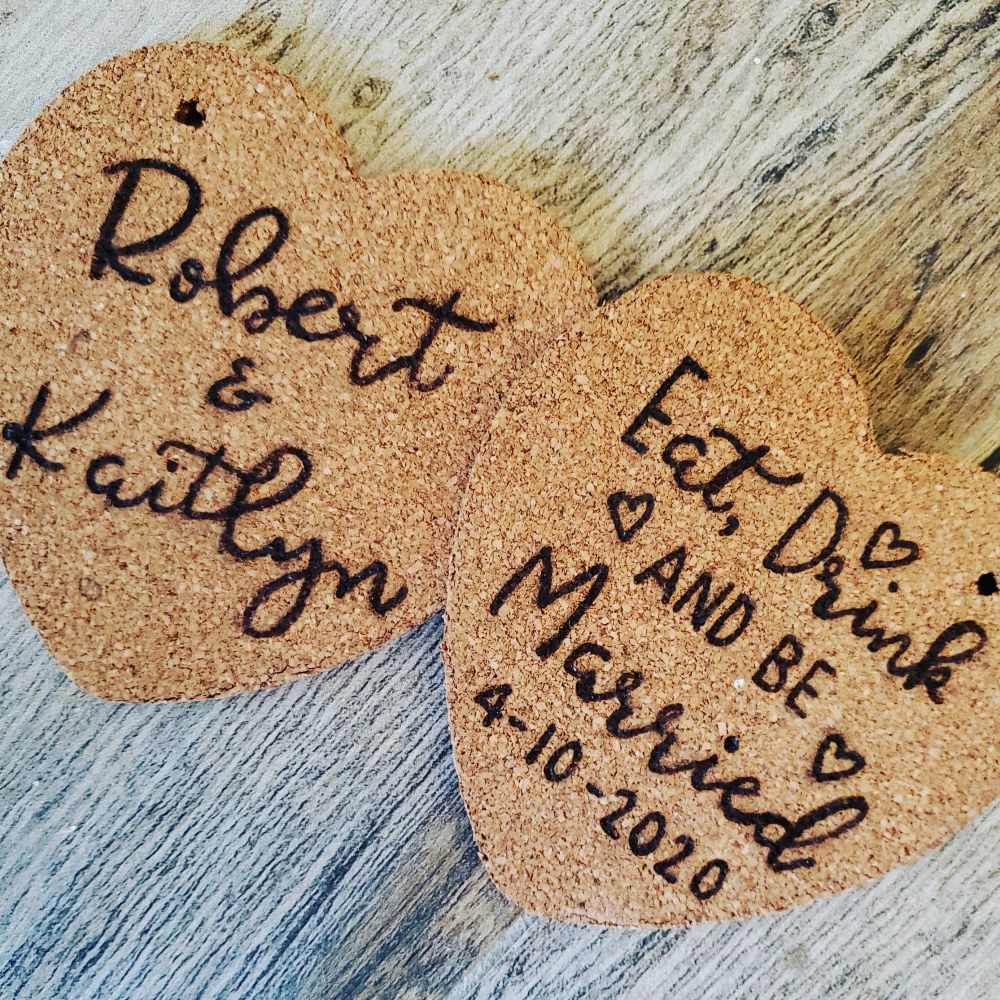 Robert
&
Kaitlyn
Eat, Drink
AND BE
Married
4-10-2020